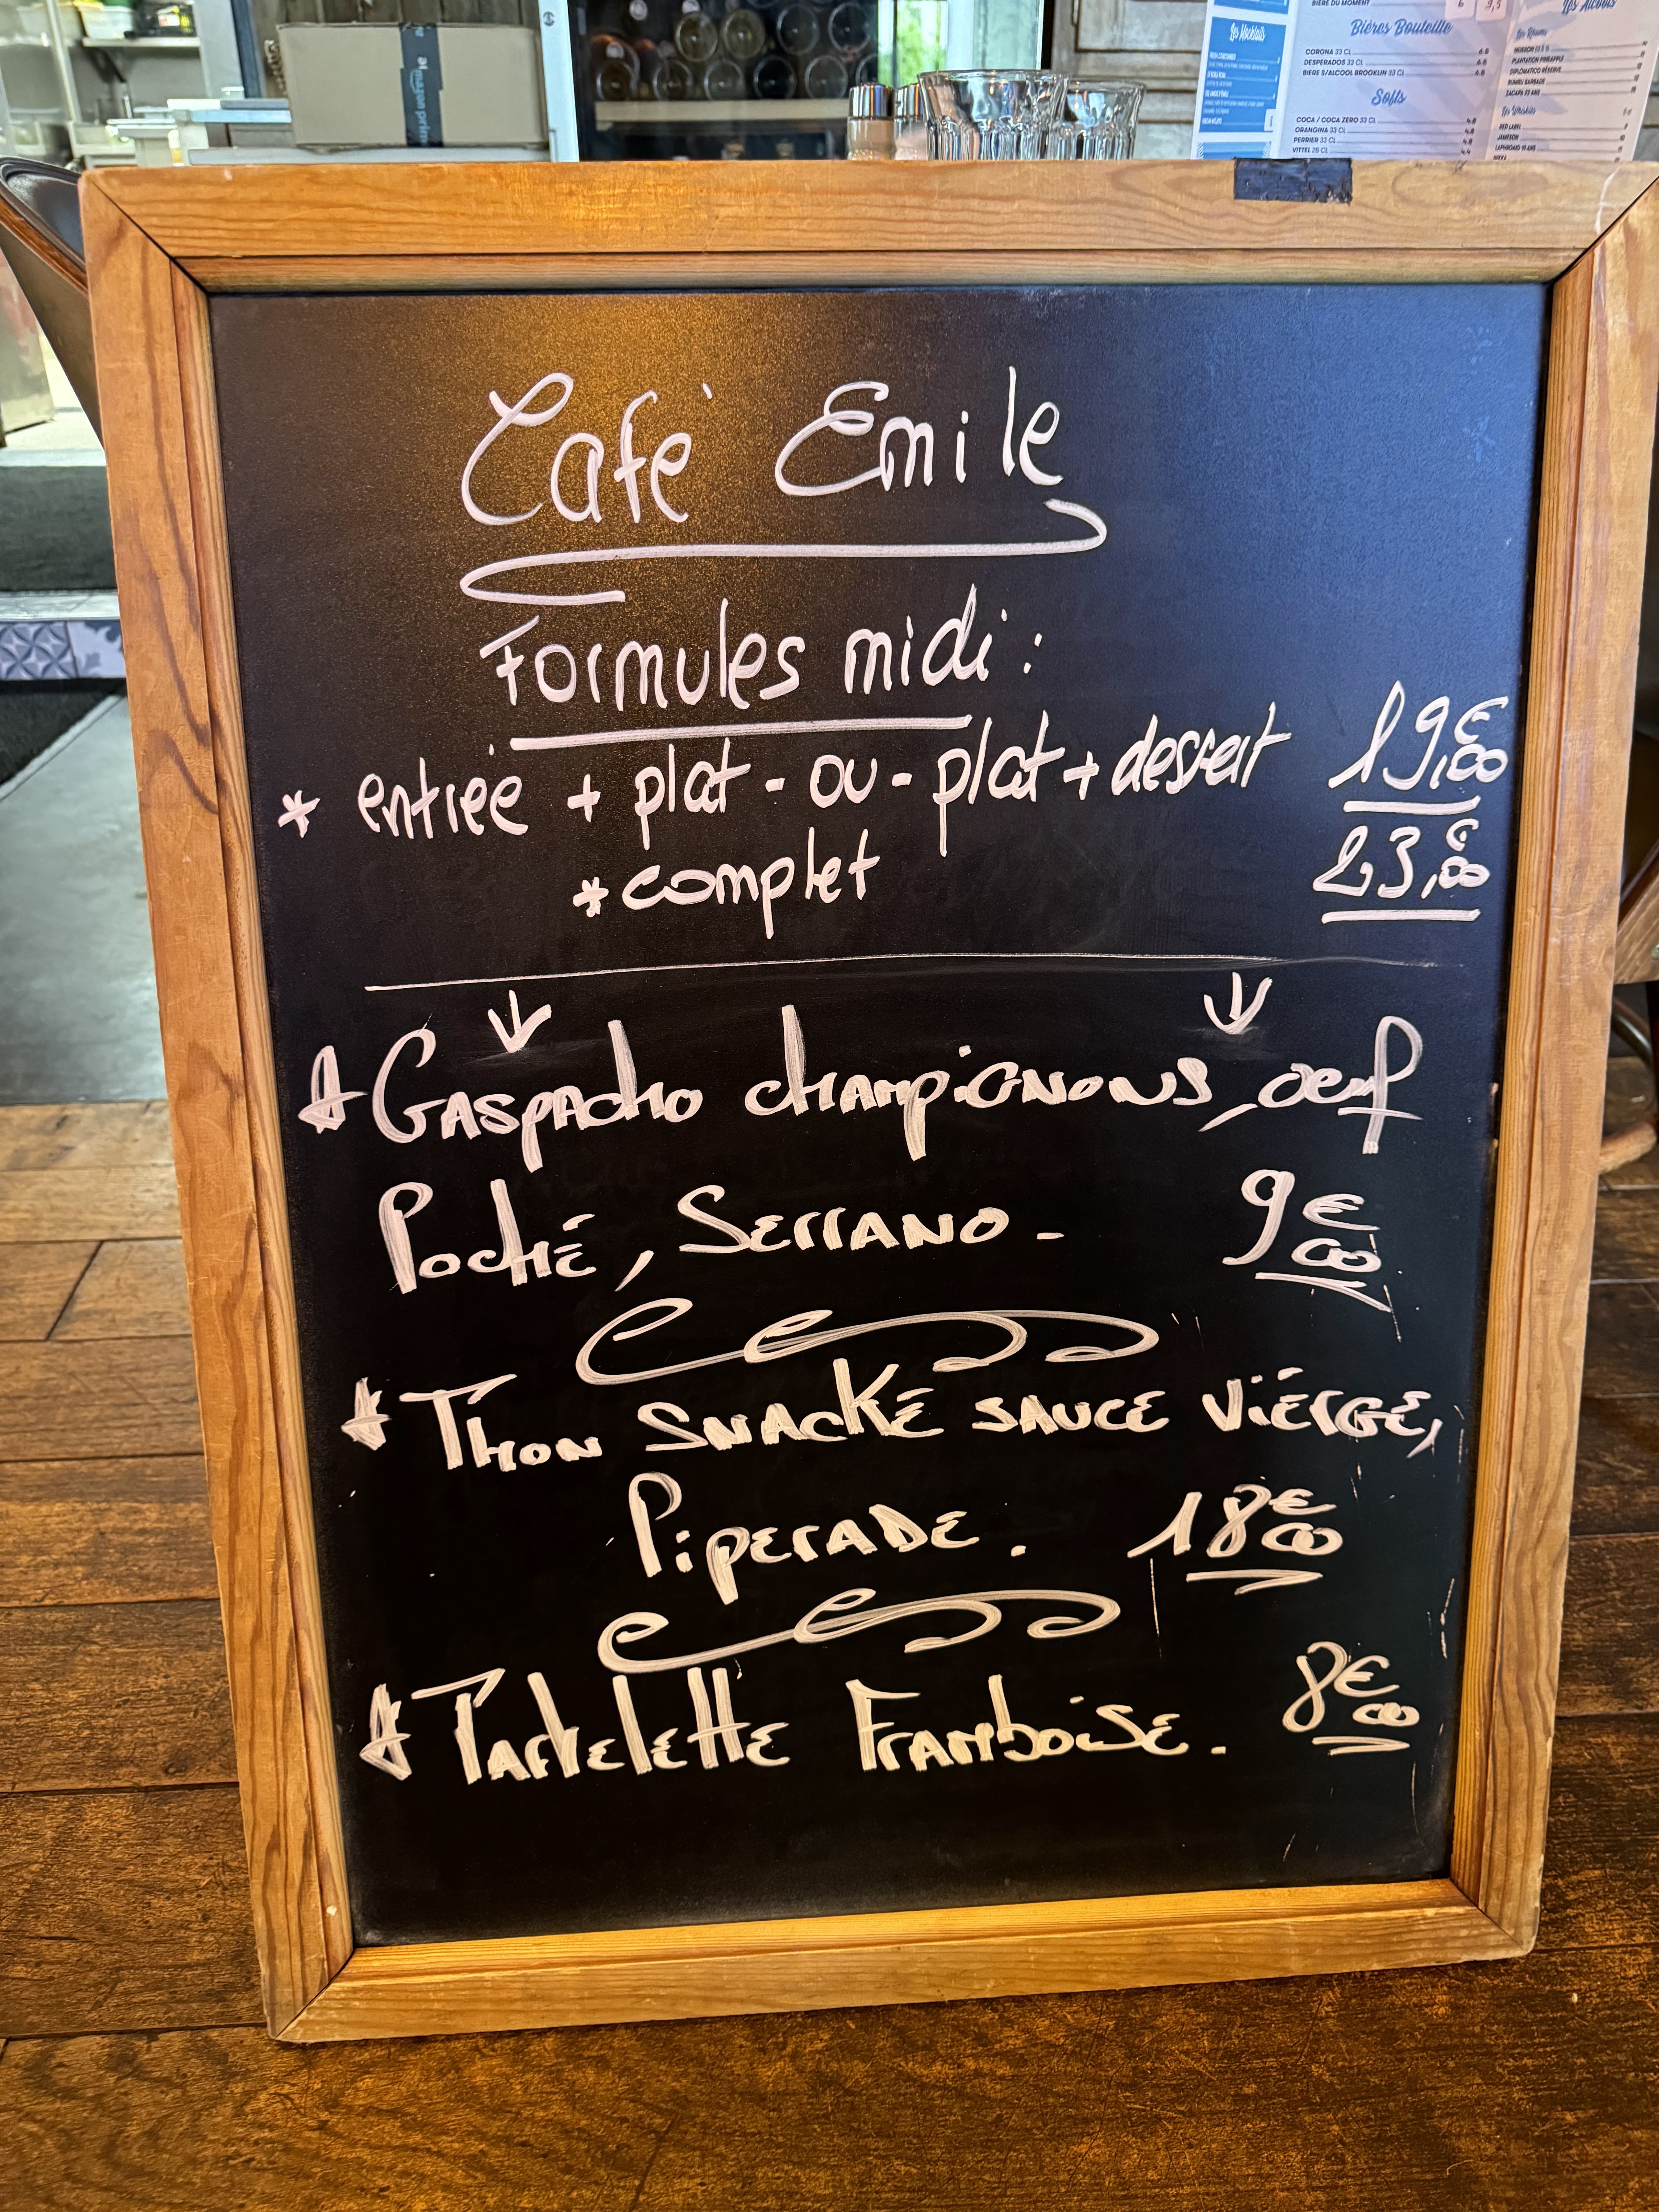 BIÈRE DU MOMENT
Bières Bouteille
CORONA 33 CL 6.8
DESPERADOS 33 CL 6.8
BIERE S/ALCOOL BROOKLIN 33 Cl 6.8
Softs
COCA / COCA ZERO 33 CL 4.8
ORANGINA 33 CL 4.8
PERRIER 33 CL 4.8
VITTEL 25 CL 4.4
Les Mocktails
Les Alcools
Les Rhums
PLANTATION PINEAPPLE
DIPLOMATICO RÉSERVE
ZACAPA 23 ANS
Les Whiskies
RED LABEL
JAMESON
Café Emile
Formules midi :
* entrée + plat - ou - plat + dessert 19,€00
* complet 23,€00
* Gaspacho champignons, oeuf
Poché, Serrano - 9€00
* Thon snacké sauce viérge,
Piperade . 18€00
* Tartelette Framboise . 8€00